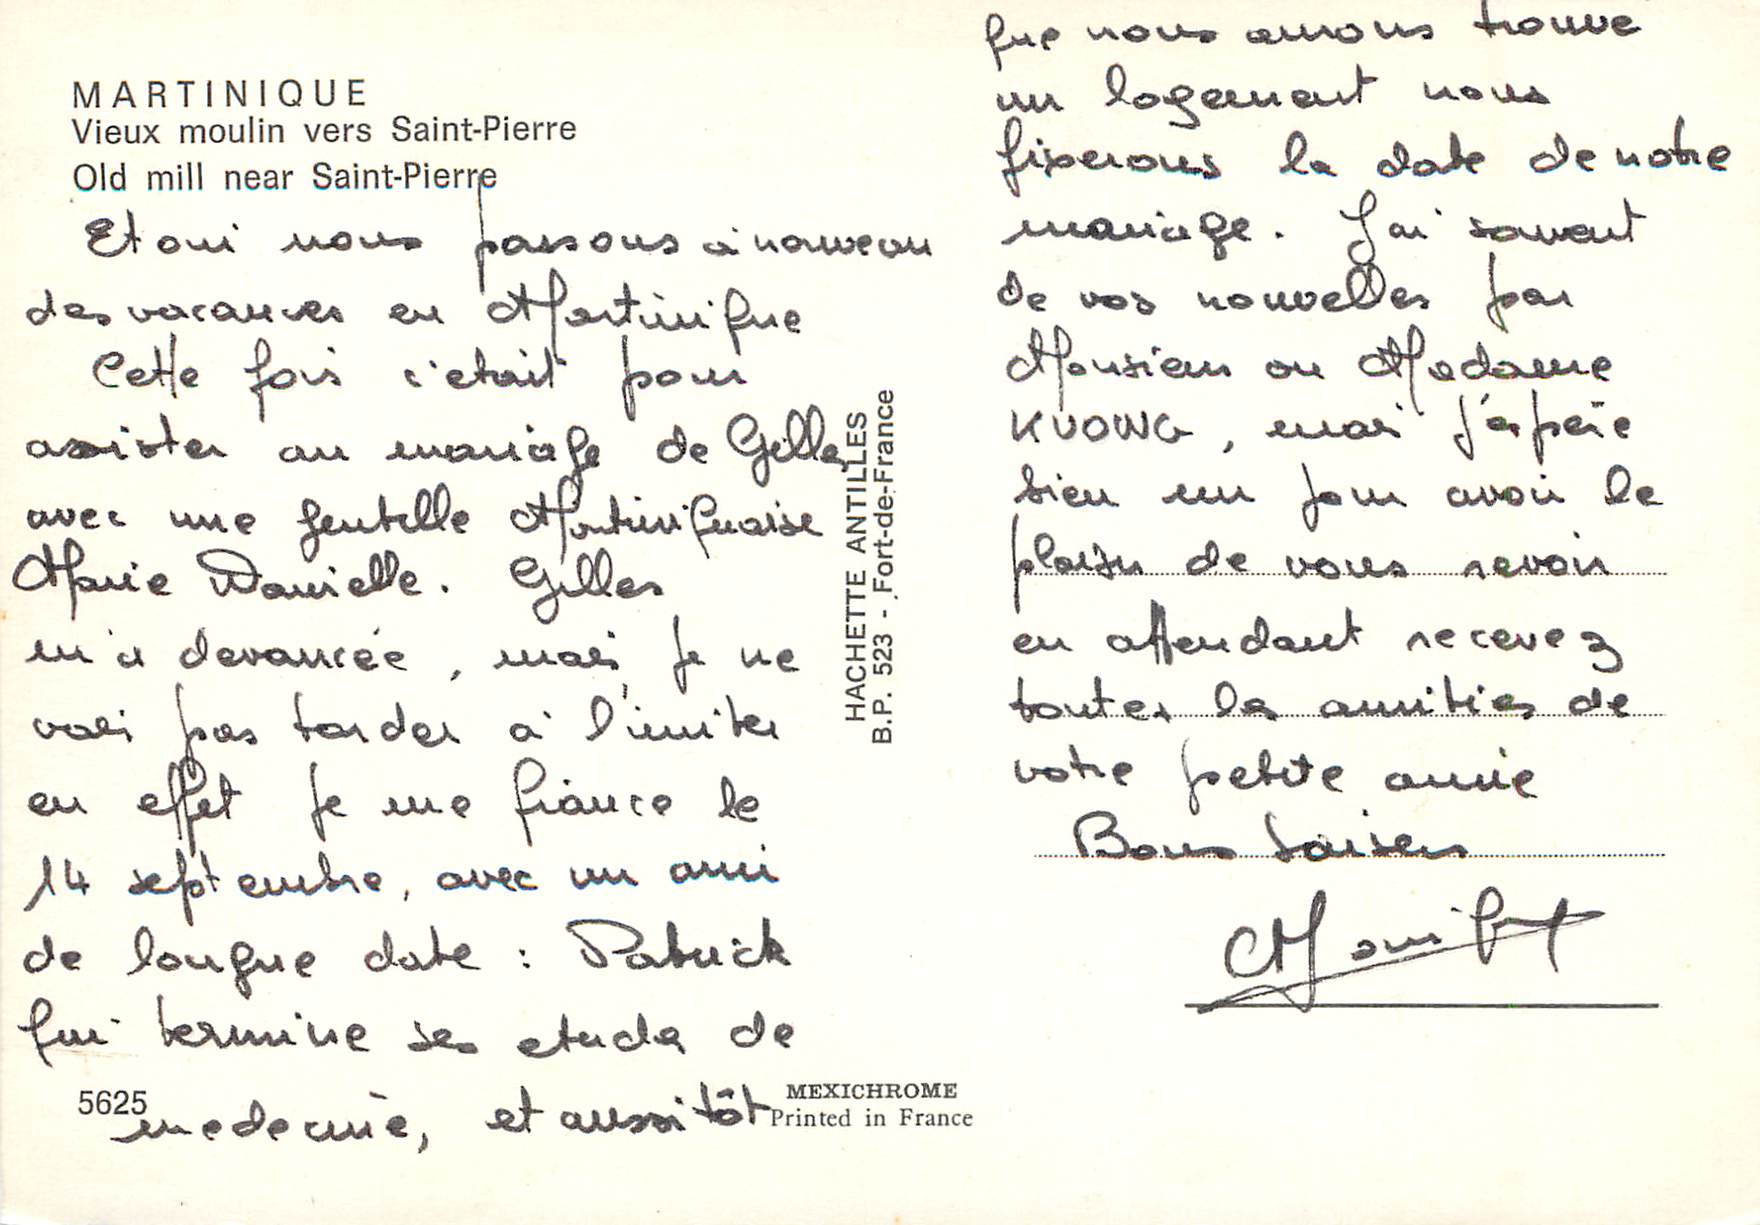 MARTINIQUE
Vieux moulin vers Saint-Pierre
Old mill near Saint-Pierre
Et oui nous passons à nouveau
des vacances en Martinique
Cette fois c'etait pour
assister au mariage de Gilles
avec une gentille Martiniquaise
Marie Danielle. Gilles
m'a devancée, mais je ne
vais pas tarder à l'imiter
en effet je me fiance le
14 septembre, avec un ami
de longue date : Patrick
qui termine ses etudes de
medecine, et aussitôt
que nous aurons trouve
un logement nous
fixerons la date de notre
mariage. J'ai souvent
de vos nouvelles par
Monsieur ou Madame
KUONG, mais j'espère
bien un jour avoir le
plaisir de vous revoir
en attendant recevez
toutes les amities de
votre petite amie
Bons baisers
HACHETTE ANTILLES
B.P. 523 - Fort-de-France
5625
MEXICHROME
Printed in France